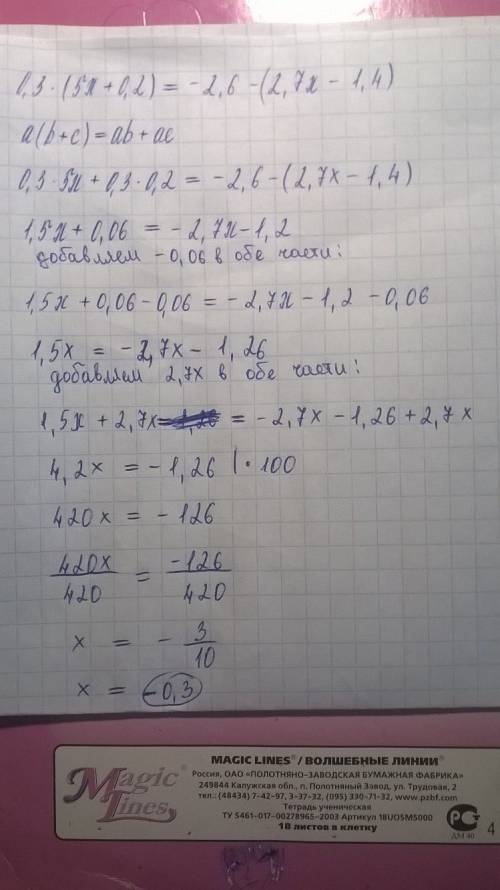 0,3·(5x+0,2) = -2,6-(2,7x-1,4)
a(b+c)=ab+ac
0,3·5x+0,3·0,2 = -2,6-(2,7x-1,4)
1,5x+0,06 = -2,7x-1,2
добавляем -0,06 в обе части:
1,5x+0,06-0,06 = -2,7x-1,2-0,06
1,5x = -2,7x-1,26
добавляем 2,7x в обе части:
1,5x+2,7x = -2,7x-1,26+2,7x
4,2x = -1,26 |·100
420x = -126
420x/420 = -126/420
x = -3/10
x = -0,3
MAGIC LINES® / ВОЛШЕБНЫЕ ЛИНИИ®
Россия, ОАО «ПОЛОТНЯНО-ЗАВОДСКАЯ БУМАЖНАЯ ФАБРИКА»
249844 Калужская обл., п. Полотняный Завод, ул. Трудовая, 2
тел.: (48434) 7-42-97, 3-37-32, (095) 330-71-32, www.pzbf.com
Тетрадь ученическая
ТУ 5461-017-00278965-2003 Артикул 18UO5M5000
18 листов в клетку
Magic
Lines
РС
ДМ 40
4